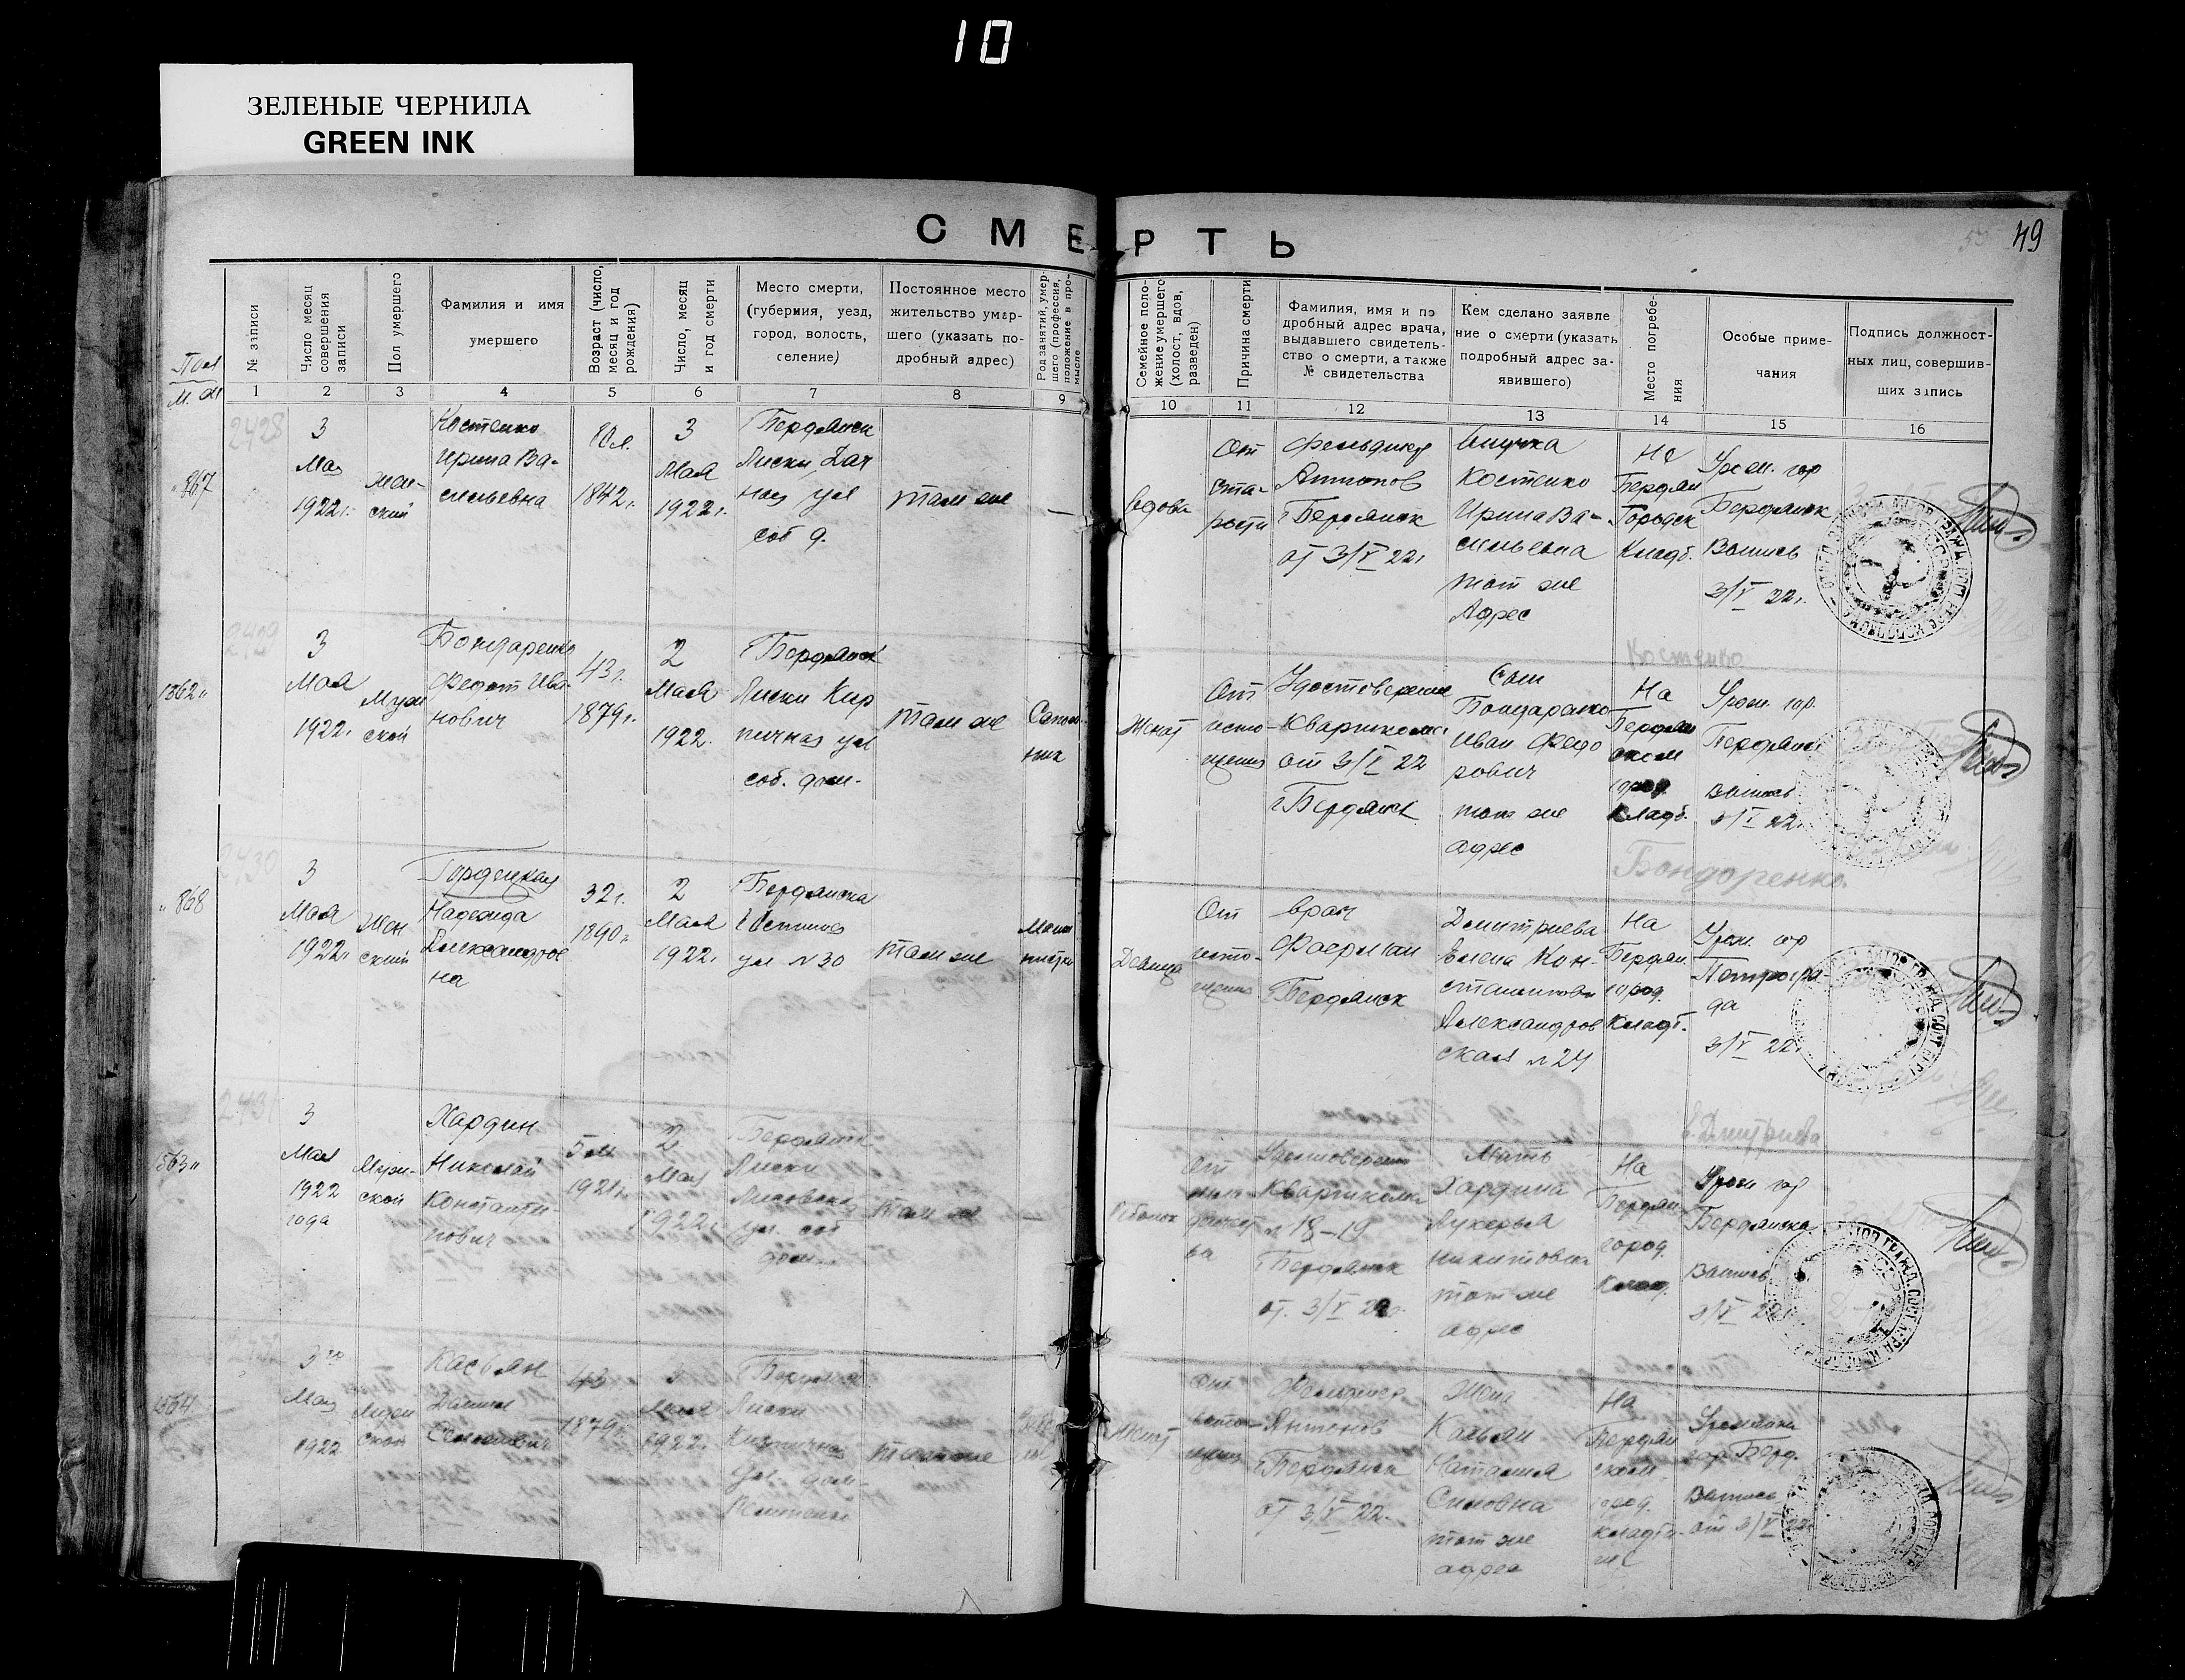 10
ЗЕЛЕНЫЕ ЧЕРНИЛА
GREEN INK
СМЕРТЬ
49
№ записи
Число месяц
совершения
записи
Пол умершего
Фамилия и имя
умершего
Возраст (число,
месяц и год
рождения)
Число, месяц
и год смерти
Место смерти,
(губерния, уезд,
город, волость,
селение)
Постоянное место
жительство умер-
шего (указать по-
дробный адрес)
Род занятий, умер-
шего (профессия,
положение в про-
мысле
Семейное поло-
жение умершего
(холост, вдов,
разведен)
Причина смерти
Фамилия, имя и по
дробный адрес врача,
выдавшего свидетель-
ство о смерти, а также
№ свидетельства
Кем сделано заявле
ние о смерти (указать
подробный адрес за-
явившего)
Место погребе-
ния
Особые приме-
чания
Подпись должност-
ных лиц, совершив-
ших запись
1 2 3 4 5 6 7 8 9 10 11 12 13 14 15 16
2428
867
3
Мая
1922 г.
жен-
ский
Костенко
Ирина Ва-
сильевна
80 л.
1842 г.
3
Мая
1922 г.
г Бердянск
Лиски Дач
ная ул
соб д.
там же
—
вдова
От
ста-
рости
Фельдшер
Антонов
г Бердянск
от 3/V 22 г
Внучка
Костенко
Ирина Ва-
сильевна
тот же
Адрес
На
Бердян
Городск
Кладб.
Урож. гор
Бердянск
Выпись
3/V 22 г.
Костенко
2429
1562 "
3
Мая
1922 г
Муж
ской
Бондаренко
Федот Ива-
нович
43 г.
1879 г.
2
Мая
1922.
г Бердянск
Лиски Кир
пичная ул
соб. дом.
там же
Сапож-
ник
Женат
От
исто-
щения
Удостоверение
Кварткома
от 3/V 22
г Бердянск
Сын
Бондаренко
Иван Федо
рович
тот же
адрес
На
Бердян
ском
город
кладб.
Урож. гор.
Бердянск
Выпись
3/V 22 г.
Бондоренко.
2430
" 868
3
Мая
1922 г
Жен
ский
Гордецкая
Надежда
Александров
на
32 г.
1890 г.
2
Мая
1922 г.
г Бердянска
ул № 30
там же
Маши
нистка
Девица
От
исто-
щения
врач
Фаерман
г Бердянск
Дмитриева
Елена Кон-
стантиновн
Александров
ская № 24
На
Бердян.
город.
Кладб.
Урож. гор
Петрогра-
да
3/V 22 г
Е. Дмитриева
2431
563 "
3
Мая
1922
года
Муж-
ской
Хардин
Николай
Константи-
нович
5 м.
1921 г.
2
Мая
1922 г.
г Бердянск
Лиски
ул. соб
дом.
там же
—
Ребенок
Удостоверение
Кварткома
№ 18-19
г Бердянск
от. 3/V 22 г.
Мать
Хардина
Лукерья
Никитовна
тот же
адрес
На
Бердян.
город.
Клад.
Урож гор
Бердянска
Выпись
3/V 22 г
1564
3го
Мая
1922
Муж
ской
Касьян
43 г
1879 г.
3
Мая
1922 г.
г Бердянск
Лиски
Кирпичная
ул. дом
там же
Женат
От
исто-
щения
Фельдшер
Антонов
г Бердянск
от 3/V 22.
Жена
Касьян
Наталия
Силовна
тот же
адрес
На
Бердян
ском
город.
кладби-
ще
Урожен
гор. Берд.
Выпись
от 3/V 22 г